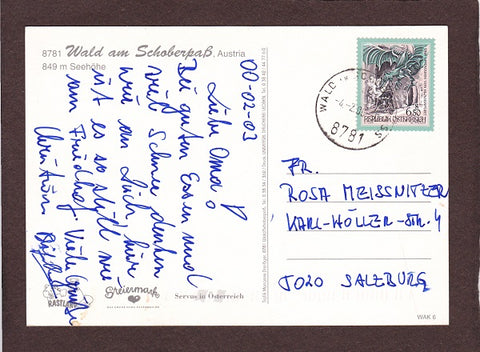 8781 Wald am Schoberpaß, Austria
849 m Seehöhe
00-02-03
Liebe Oma!
Bei guten Essen und
viel Schnee denken
wir an Dich, hier
ist es so still wie
am Friedhof. Viele Grüße
Christian
WALD
8781
6.50
REPUBLIK ÖSTERREICH
FR.
ROSA MEISSNITZER
KARL-HÖLLER-STR. 4
5020 SALZBURG
RASTLAND
Steiermark
Servus in Österreich
WAK 6